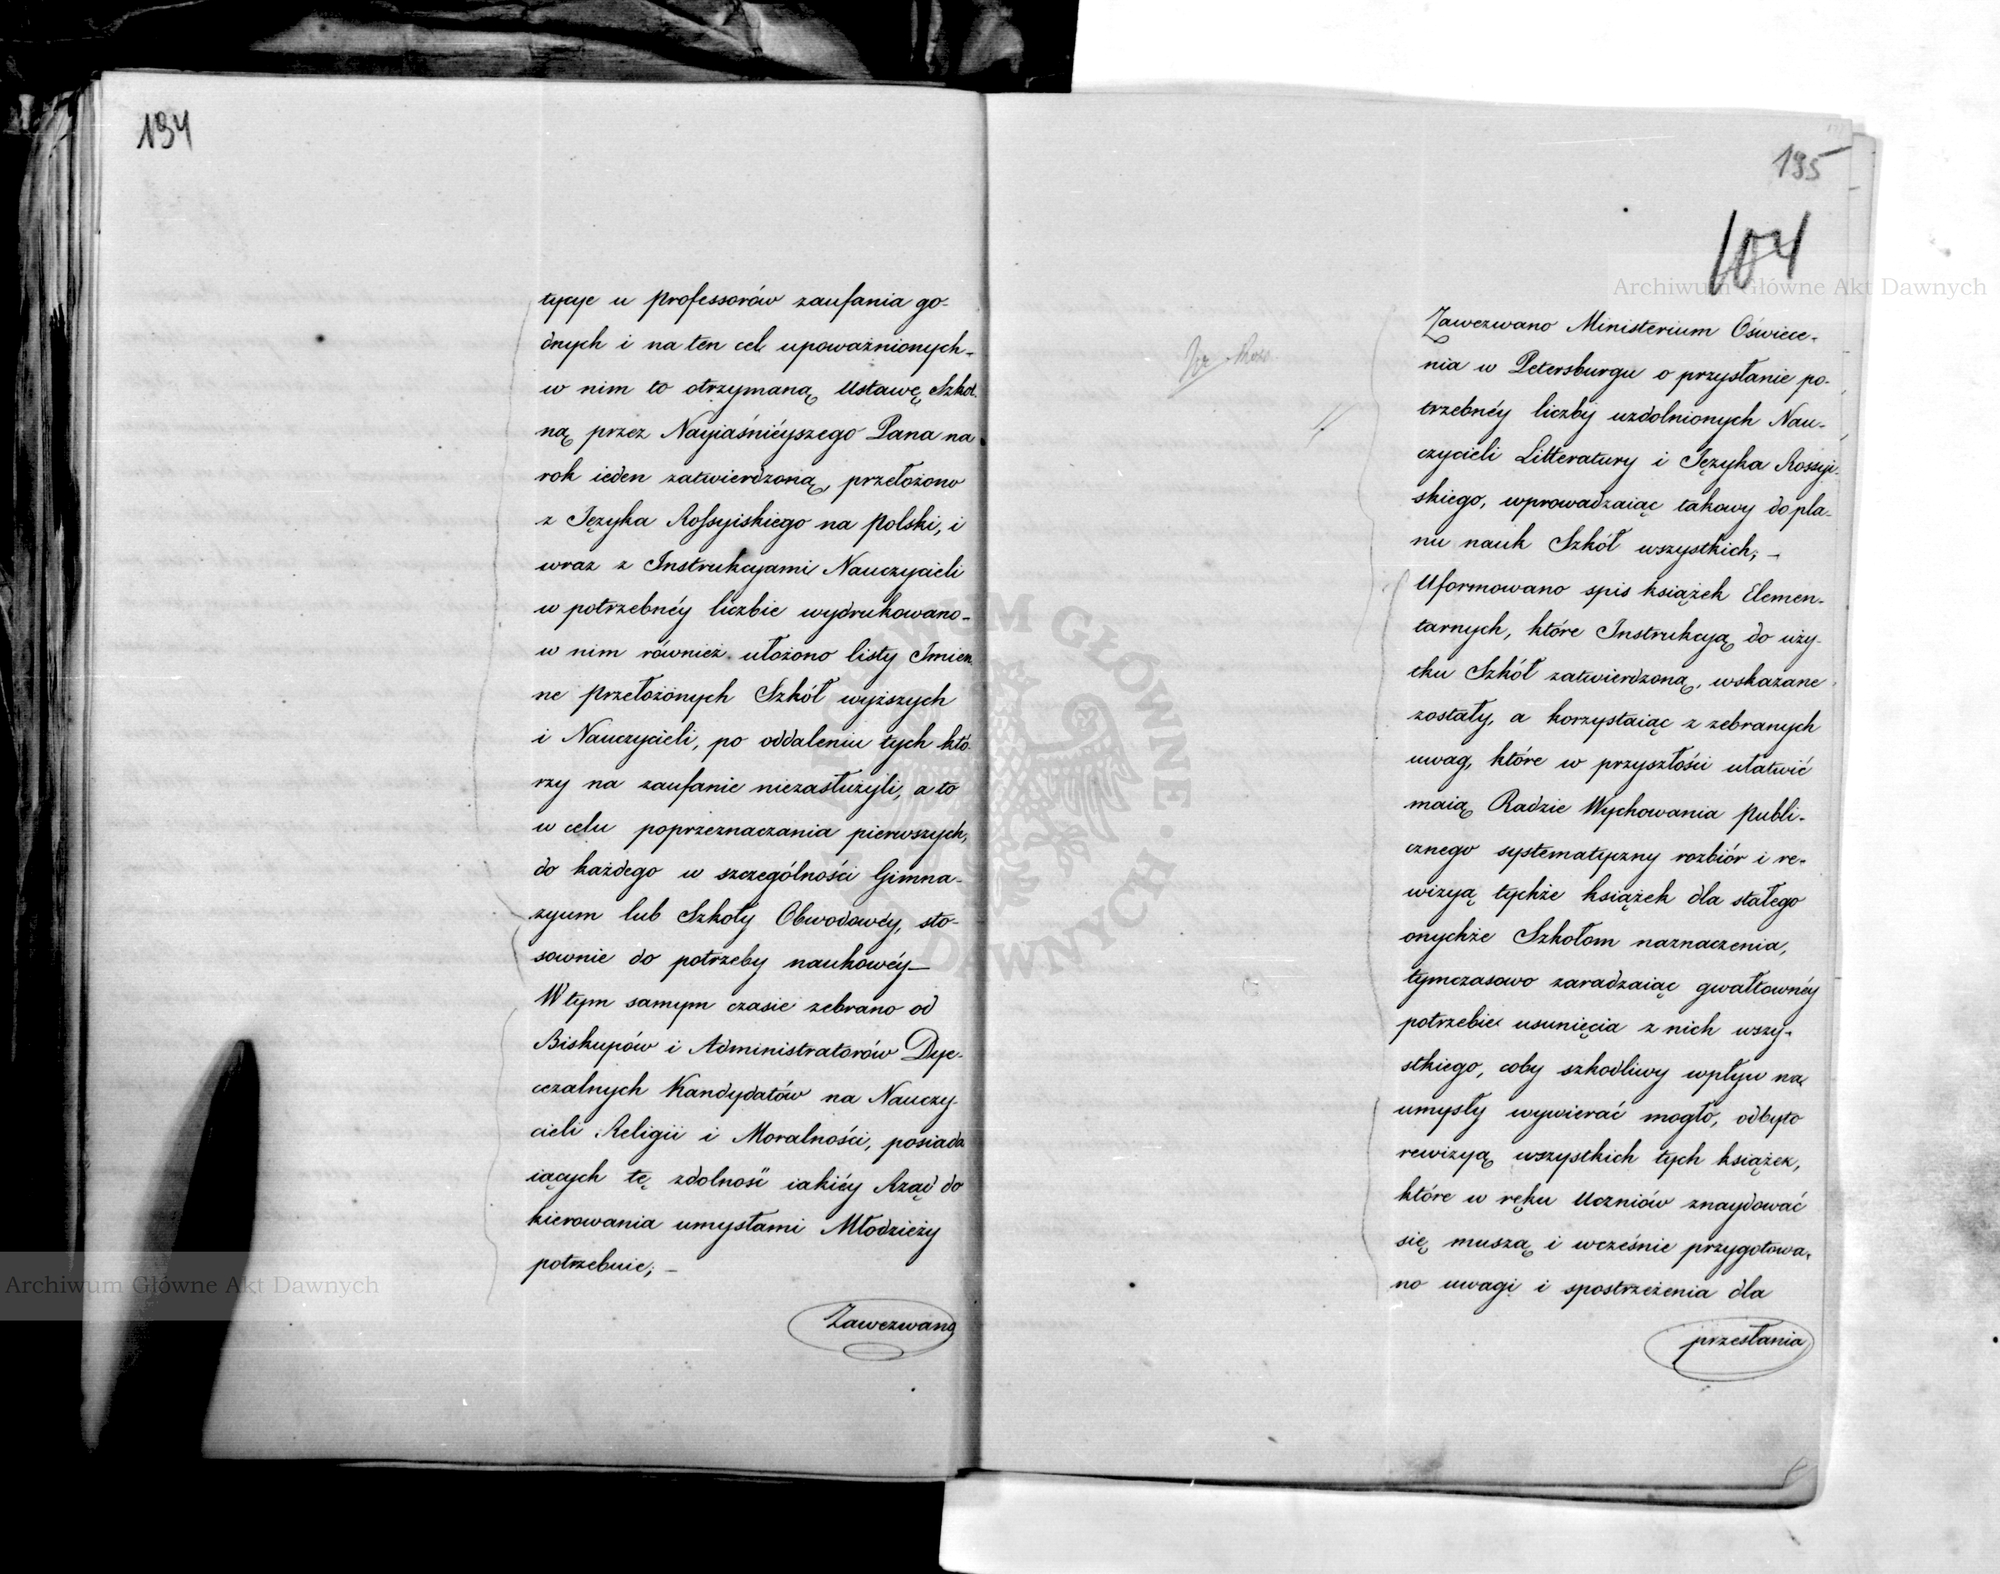 194
tycye u professorów zaufania go-
dnych i na ten cel upoważnionych-
w nim to otrzymaną Ustawę Szkol-
ną przez Nayiaśniéyszego Pana na
rok ieden zatwierdzoną, przełożono
z Języka Rossyiskiego na Polski, i
wraz z Instrukcyami Nauczycieli
w potrzebnéy liczbie wydrukowano-
w nim również ułożono listy Imien-
ne przełożonych Szkół wyższych
i Nauczycieli, po oddaleniu tych któ-
rzy na zaufanie niezasłużyli, a to
w celu poprzeznaczania pierwszych,
do każdego w szczególności Gimna-
zyum lub Szkoły Obwodowéy, sto-
sownie do potrzeby naukowéy—
W tym samym czasie zebrano od
Biskupów i Administratorów Dye-
cezalnych Kandydatów na Nauczy-
cieli Religii i Moralności, posiada
iących tę zdolność iakiéy Rząd do
kierowania umysłami Młodzieży
potrzebuie; —
Zawezwano
195
104
Zawezwano Ministerium Oświece-
nia w Petersburgu o przysłanie po-
trzebnéy liczby uzdolnionych Nau-
czycieli Litteratury i Języka Rossyi-
skiego, wprowadzaiąc takowy do pla-
nu nauk Szkół wszystkich; —
Uformowano spis książek Elemen-
tarnych, które Instrukcyą do uży-
tku Szkół zatwierdzoną, wskazane
zostały, a korzystaiąc z zebranych
uwag, które w przyszłości ułatwić
maią Radzie Wychowania Publi-
cznego systematyczny rozbiór i re-
wizyą tychże książek dla stałego
onychże Szkołom naznaczenia,
tymczasowo zaradzaiąc gwałtownéy
potrzebie usunięcia z nich wszy-
stkiego, coby szkodliwy wpływ na
umysły wywierać mogło, odbyto
rewizyą wszystkich tych książek,
które w ręku Uczniów znaydować
się muszą i wcześnie przygotowa-
no uwagi i spostrzeżenia dla
przesłania
Archiwum Główne Akt Dawnych
Archiwum Główne Akt Dawnych
ARCHIWUM GŁÓWNE · AKT DAWNYCH ·